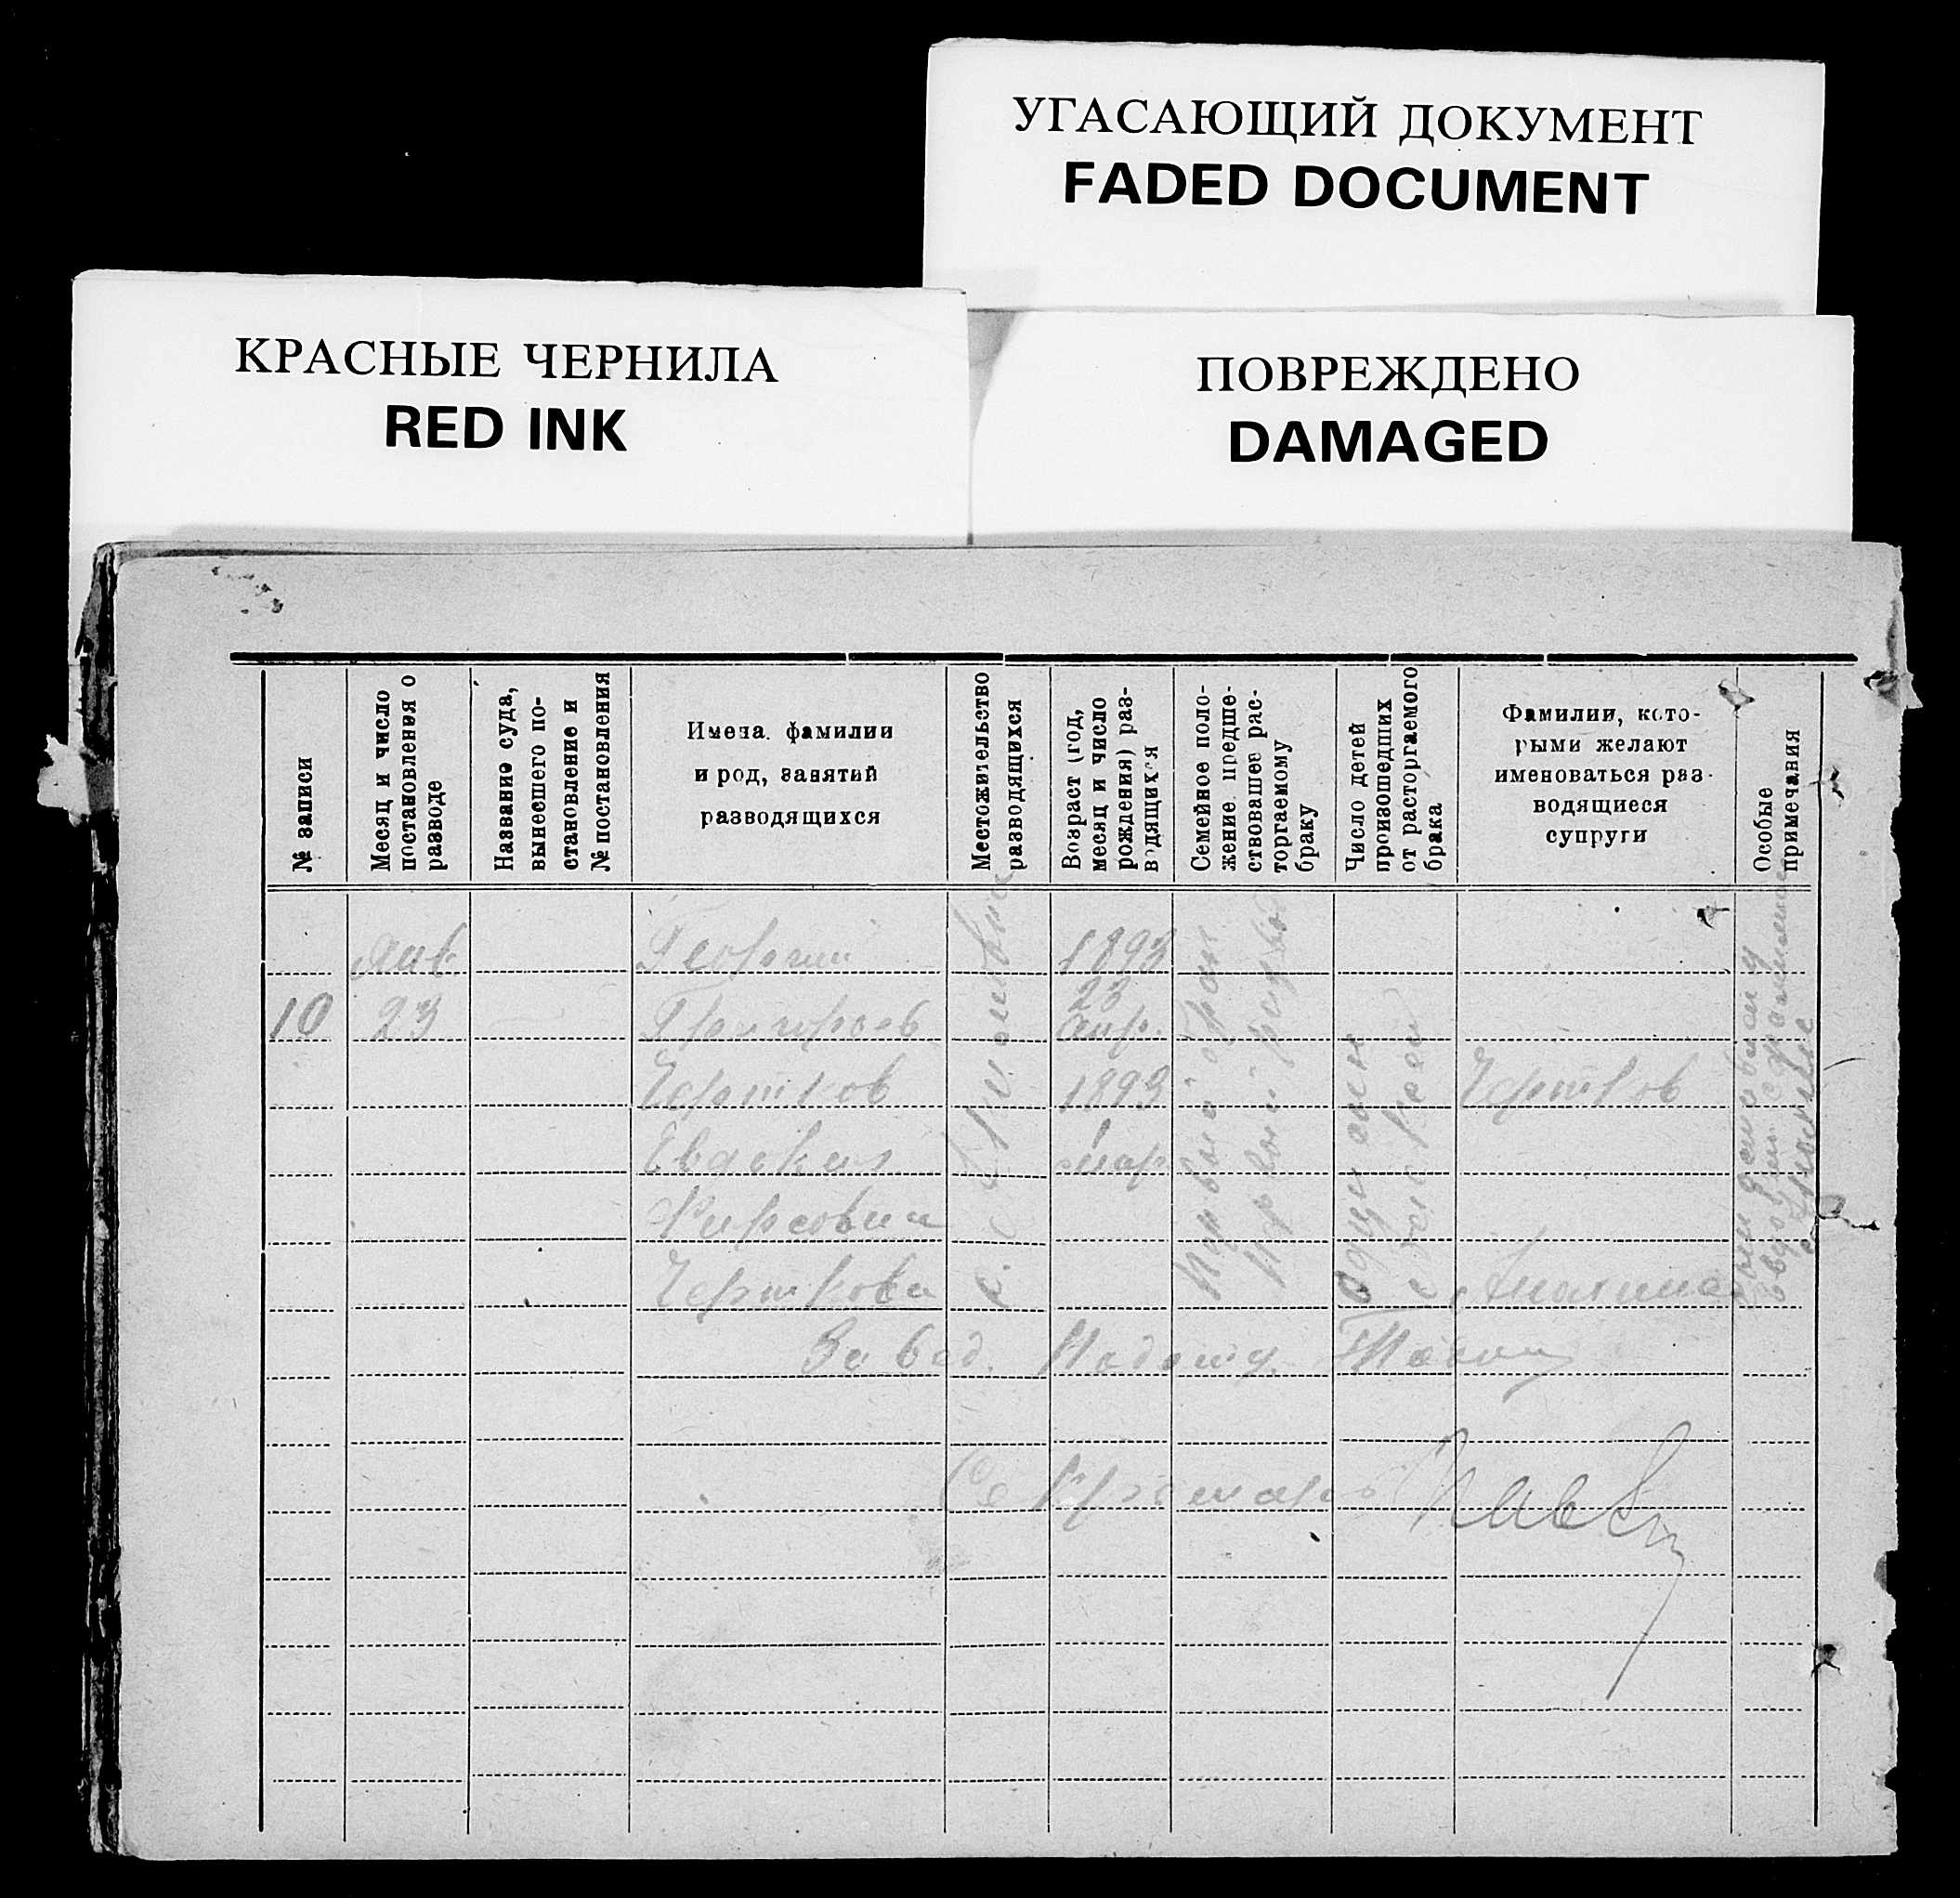 УГАСАЮЩИЙ ДОКУМЕНТ
FADED DOCUMENT
КРАСНЫЕ ЧЕРНИЛА
RED INK
ПОВРЕЖДЕНО
DAMAGED
№ записи
Месяц и число
постановления о
разводе
Название суда,
вынесшего по-
становление и
№ постановления
Имена. фамилии
и род, занятий
разводящихся
Местожительство
разводящихся
Возраст (год,
месяц и число
рождения) раз-
водящихся
Семейное поло-
жение, предше-
ствовавшее рас-
торгаемому
браку
Число детей
произошедших
от расторгаемого
брака
Фамилии, кото-
рыми желают
именоваться раз-
водящиеся
супруги
Особые
примечания
10
янв
23
Георгий
Григорьев
Чертков
Евдокия
Фирсовна
Черткова
1893
23
апр.
1893
1
мар
Первый брак
Первый развод
Один сын
Чертков
Зав под.
Секретарь